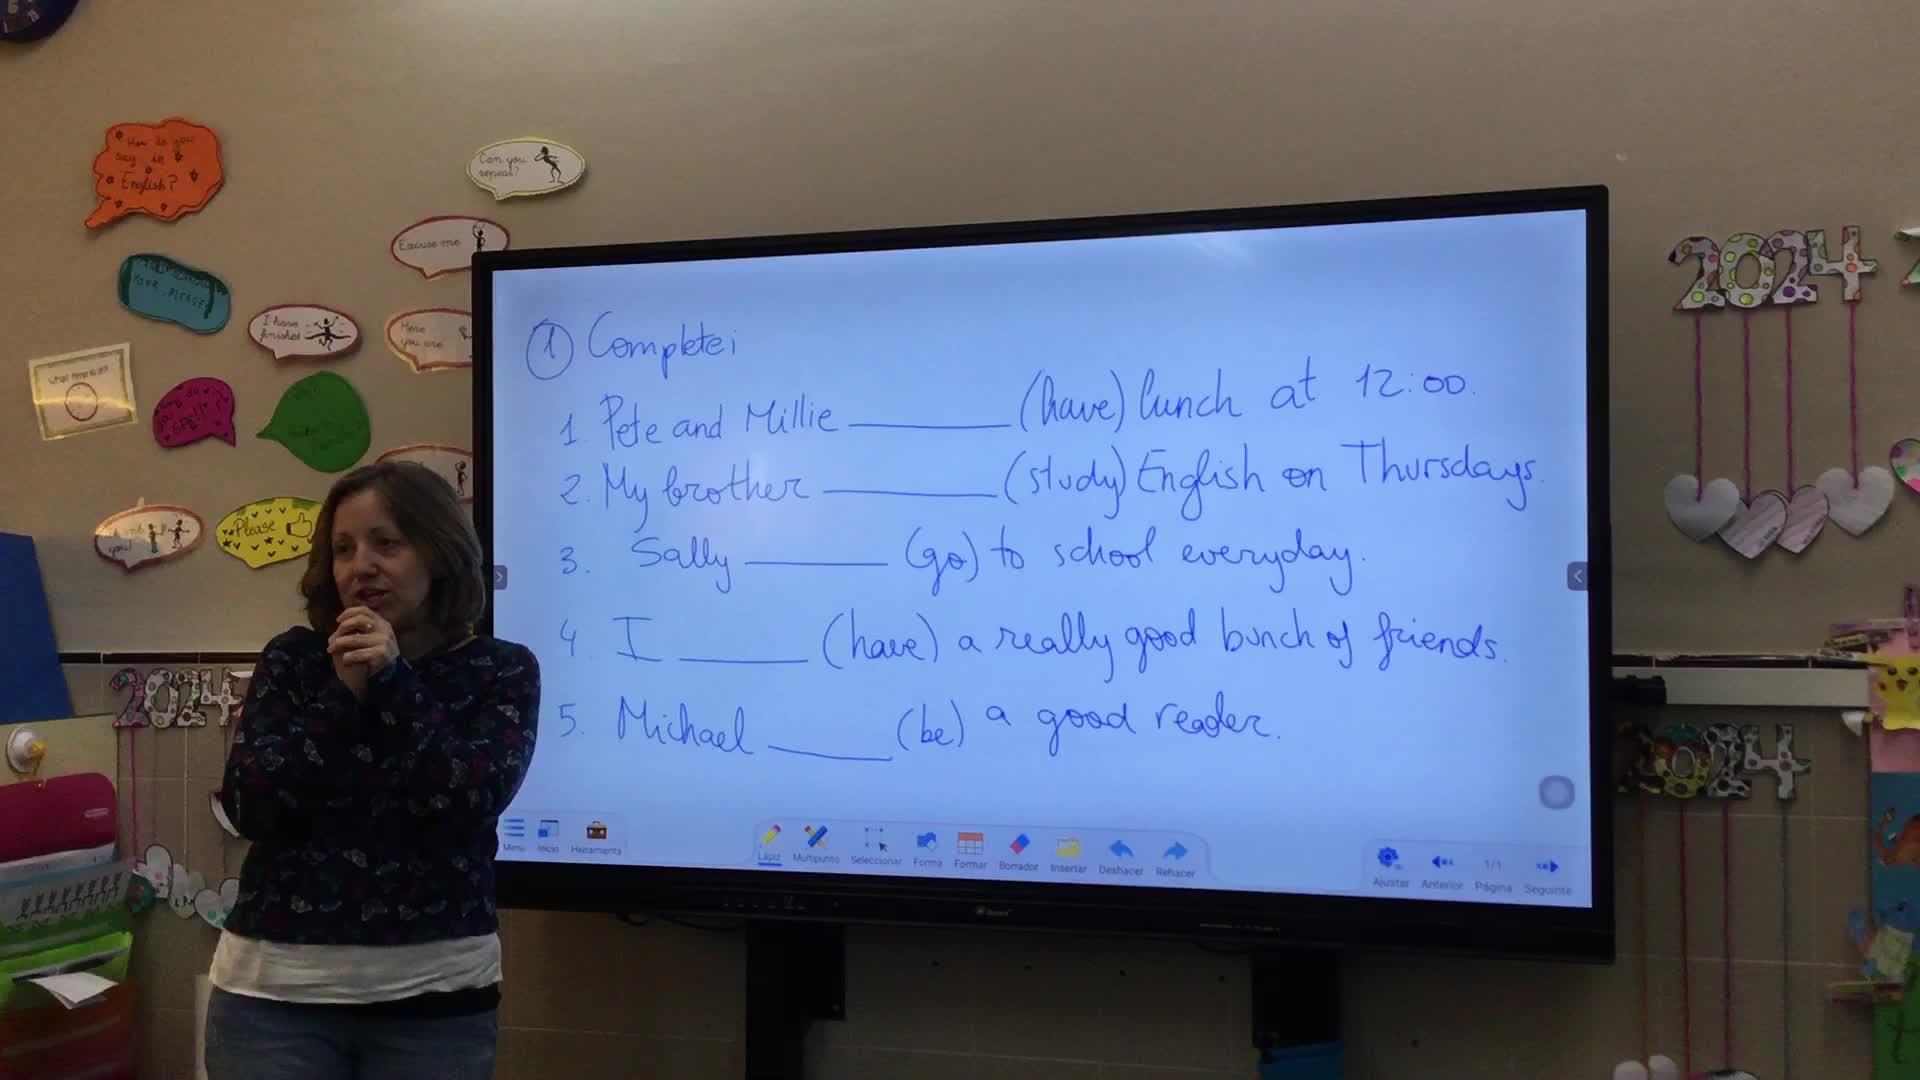 How do you
say in
English?
Can you
repeat?
Excuse me
I have
finished
Here
you are
Please
2024
2024
2024
① Complete:
1. Pete and Millie ________ (have) lunch at 12:00.
2. My brother ________ (study) English on Thursdays.
3. Sally ________ (go) to school everyday.
4. I ________ (have) a really good bunch of friends.
5. Michael ________ (be) a good reader.
Menú Inicio Herramienta Lápiz Multipunto Seleccionar Forma Formar Borrador Insertar Deshacer Rehacer Ajustar Anterior 1/1 Página Seguinte